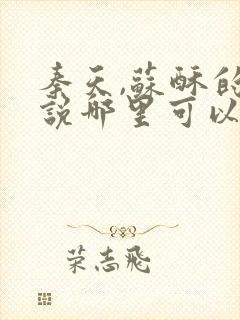 秦天,蘇酥的
說哪里可以
荣志飛